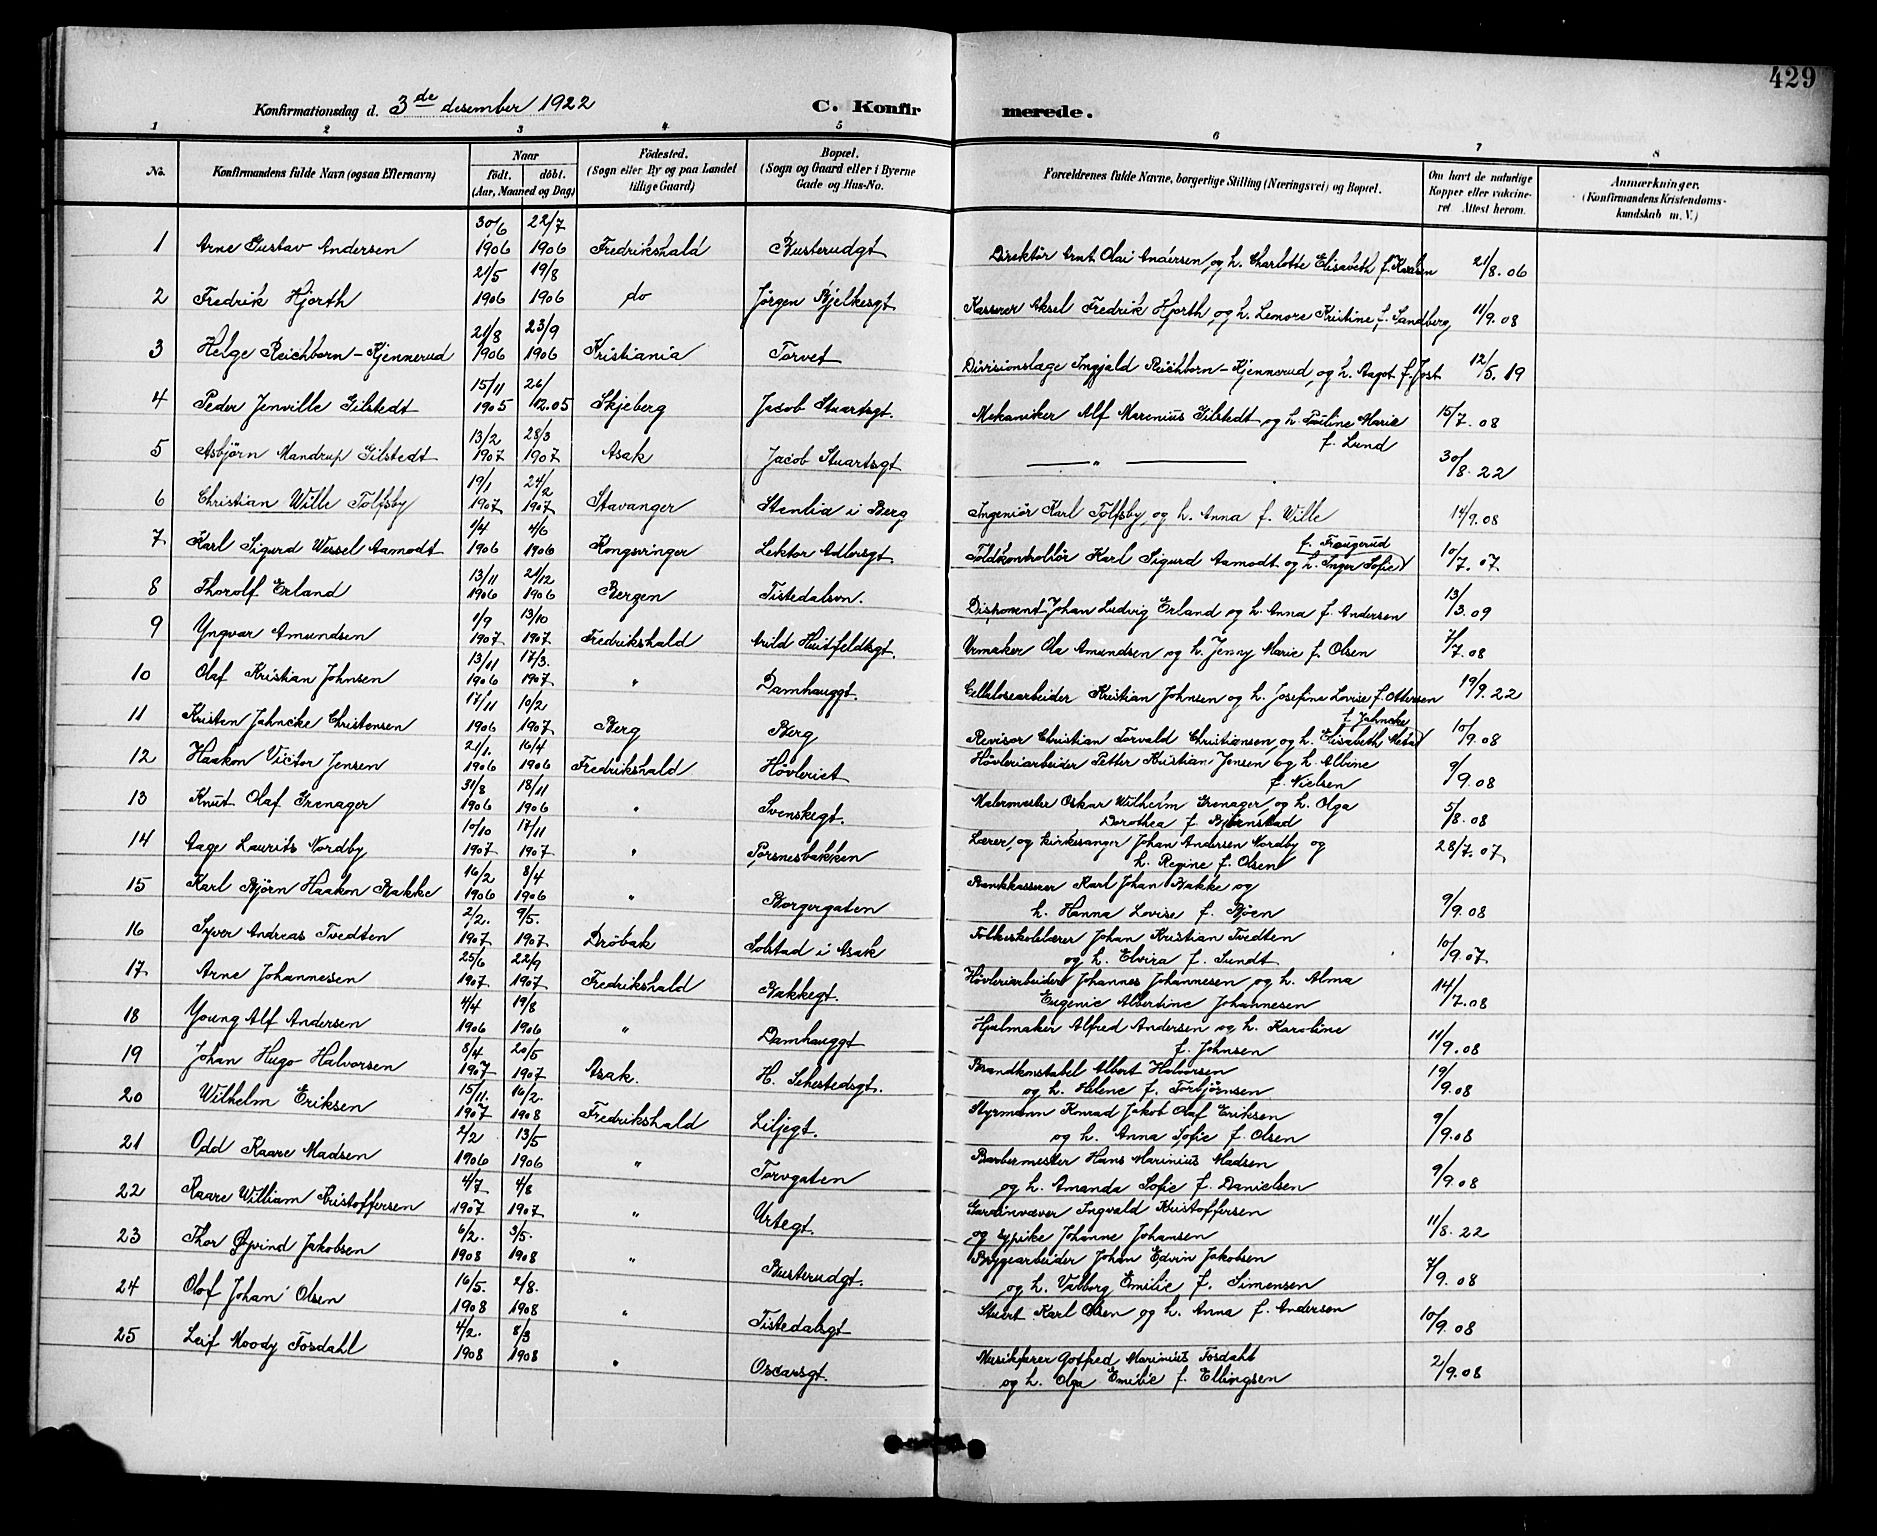 429
Konfirmationsdag d. 3de desember 1922 C. Konfir merede.
1 2 3 4 5 6 7 8
No. Konfirmandens fulde Navn (ogsaa Efternavn) Naar födt. döbt. (Aar, Maaned og Dag) Födested. (Sogn eller By og paa Landet tillige Gaard) Bopæl. (Sogn og Gaard eller i Byerne Gade og Hus-No. Forældrenes fulde Navne, borgerlige Stilling (Næringsvei) og Bopæl. Om havt de naturlige Kopper eller vakcineret Attest herom. Anmærkninger. (Konfirmandens Kristendomskundskab m. V.)
1 Arne Gustav Andersen 30/6 1906 22/7 1906 Fredrikshald Busterudgt Direktör Arnt Olai Andersen og h. Charlotte Elisabeth f. Karlsen 21/8.06
2 Fredrik Hjorth 21/5 1906 19/8 1906 do Jörgen Bjelkesgt. Kasserer Aksel Fredrik Hjorth og h. Lenore Kristine f. Sandberg 11/9.08
3 Helge Reichborn-Kjennerud 21/8 1906 23/9 1906 Kristiania Torvet Divisionslæge Ingjald Reichborn-Kjennerud og h. Aagot f. Jost 12/5.19
4 Peder Jenville Gilstedt 15/11 1905 26/12.05 Skjeberg Jacob Stuartsgt. Mekaniker Alf Marenius Gilstedt og h. Pauline Marie f. Lund 15/7.08
5 Asbjörn Mandrup Gilstedt 13/2 1907 28/3 1907 Asak Jacob Stuartsgt — " — 30/8.22
6 Christian Wille Tolfsby 19/1 1907 24/2 1907 Stavanger Stenlia i Berg Ingeniör Karl Tolfsby og h. Anna f. Wille 14/9.08
7 Karl Sigurd Wessel Aamodt 1/4 1906 4/6 1906 Kongsvinger Lektor Adlersgt. Toldkontrollör Karl Sigurd Aamodt og h. Inger Sofie f. Fraugerud 10/7.07
8 Thorolf Erland 13/11 1906 21/12 1906 Bergen Tistedalsvn. Disponent Johan Ludvig Erland og h. Anna f. Andersen 13/3.09
9 Yngvar Amundsen 1/9 1907 13/10 1907 Fredrikshald Arild Huitfeldtsgt. Urmaker Ola Amundsen og h. Jenny Marie f. Olsen 7/7.08
10 Olaf Kristian Johnsen 13/11 1906 17/3. 1907 " Damhauggt. Cellulosearbeider Kristian Johnsen og h. Josefine Lovise f. Ottersen 19/9.22
11 Kristen Jahncke Christensen 17/11 1906 10/2 1907 Berg Berg Revisor Christian Torvald Christiansen og h. Elisabeth Meta f. Jahncke 10/9.08
12 Haakon Victor Jensen 21/1. 1906 16/4 1906 Fredrikshald Hövleriet Hövleriarbeider Petter Kristian Jensen og h. Albine f. Nielsen 9/9.08
13 Knut Olaf Grenager 31/8 1906 18/11 1906 " Svenskegt. Malermester Oskar Wilhelm Grenager og h. Olga Dorothea f. Björnstad 5/8.08
14 Aage Laurits Nordby 10/10 1907 17/11 1907 " Porsnesbakken Lærer og kirkesanger Johan Andersen Nordby og h. Regine f. Olsen 28/7.07
15 Karl Björn Haakon Bakke 16/2 1906 8/4 1906 " Borgergaten Bankkasserer Karl Johan Bakke og h. Hanna Lovise f. Böen 9/9.08
16 Syver Andreas Tvedten 2/2. 1907 9/5. 1907 Dröbak Solstad i Asak Folkeskolelærer Johan Kristian Tvedten og h. Elvira f. Sundt 10/9.07
17 Arne Johannesen 25/6 1907. 22/9 1907 Fredrikshald Bakkegt. Hövleriarbeider Johannes Johannesen og h. Alma Eugenie Albertine Johannesen 14/7.08
18 Young Alf Andersen 4/4 1906 19/8 1906 " Damhauggt Hjulmaker Alfred Andersen og h. Karoline f. Johnsen 11/9.08
19 Johan Hugo Halvorsen 8/4 1907 20/5 1907 Asak. H. Sehestedsgt. Brandkonstabel Albert Halvorsen og h. Helene f. Torbjörnsen 19/9.08
20 Wilhelm Eriksen 15/11. 1907 16/2. 1908 Fredrikshald Liljegt. Styrmann Konrad Jakob Olaf Eriksen og h. Anna Sofie f. Olsen 9/9.08
21 Odd Kaare Madsen 2/2 1906 13/5 1906 " Torvgaten Barbermester Hans Marinius Madsen og h. Amanda Sofie f. Danielsen 9/9.08
22 Kaare William Kristoffersen 4/7 1907 4/8 1907. " Urtegt. Gardinvæver Ingvald Kristoffersen og sypike Johanne Johansen 11/8.22
23 Thor Øyvind Jakobsen 6/2. 1908 3/5. 1908 " Busterudgt. Bryggearbeider Johan Edvin Jakobsen og h. Valborg Emilie f. Simensen 7/9.08
24 Olaf Johan Olsen 16/5. 1908 2/8. 1908 " Tistedalsgt Stuert Karl Olsen og h. Anna f. Andersen 10/9.08
25 Leif Moody Fosdahl 4/2. 1908 8/3 1908 " Oscarsgt. Musikfører Gotfred Marinius Fosdahl og h. Olga Emilie f. Ellingsen 2/9.08